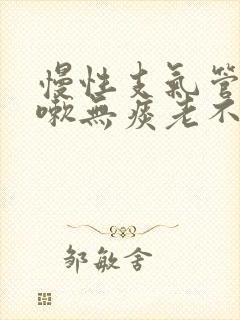 慢性支氣管
嗽無痰老不
邹敏舍